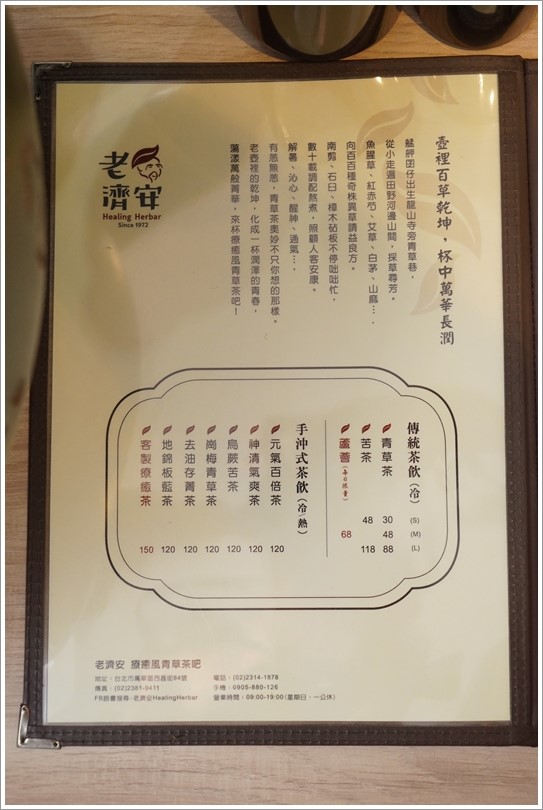 老濟安
Healing Herbar
Since 1972
壺裡百草乾坤，杯中萬華長潤
艋舺囝仔出生龍山寺旁青草巷，
從小走遍田野河邊山間，採草尋芳。
魚腥草、紅赤芍、艾草、白茅、山藶…，
向百百種奇株異草請益良方。
南剪、石臼、樟木砧板不停咄咄忙，
數十載調配熬煮，照顧人客安康。
解暑、沁心、醒神、通氣…，
有恙無恙，青草茶奧妙不只你想的那樣。
老壺裡的乾坤，化成一杯潤澤的青春，
蕩漾萬般菁華，來杯療癒風青草茶吧！
傳統茶飲（冷） (S) (M) (L)
青草茶 30 48 88
苦茶 48 118
蘆薈（每日限量） 68
手沖式茶飲（冷/熱）
元氣百倍茶 120
神清氣爽茶 120
烏蕨苦茶 120
崗梅青草茶 120
去油存菁茶 120
地錦板藍茶 120
客製療癒茶 150
老濟安 療癒風青草茶吧
地址：台北市萬華區西昌街84號 電話：(02)2314-1878
傳真：(02)2381-9411 手機：0905-880-126
FB臉書搜尋-老濟安HealingHerbar 營業時間：09:00-19:00(星期日、一公休)